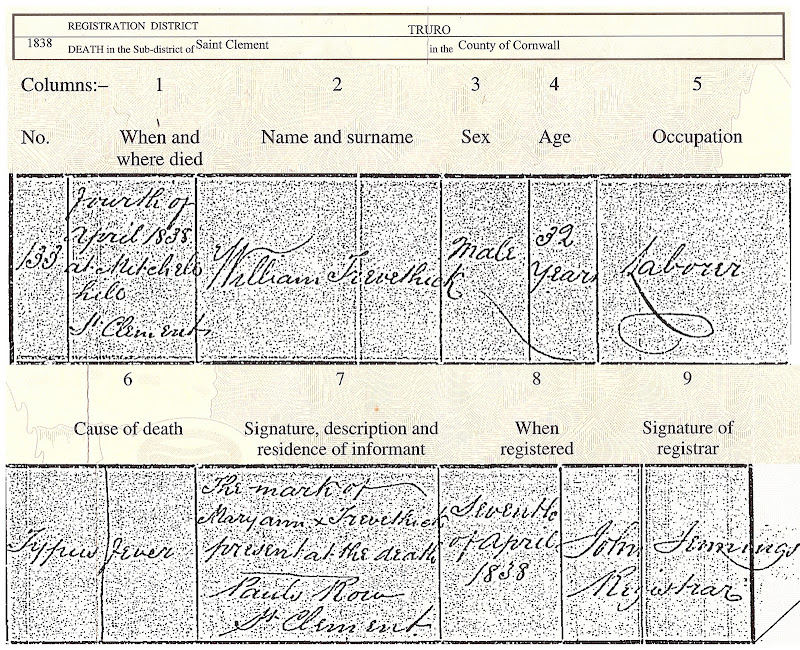 REGISTRATION DISTRICT TRURO
1838 DEATH in the Sub-district of Saint Clement in the County of Cornwall
Columns:– 1 2 3 4 5
No. When and where died Name and surname Sex Age Occupation
133
fourth of
April 1838
at Mitchells
hill
St Clements
William Trevethick
Male
32
Years
Laborer
6 7 8 9
Cause of death Signature, description and residence of informant When registered Signature of registrar
Typus Fever
The mark of
Maryann x Trevethick
present at the death
Pauls Row
St Clement
Seventh
of April
1838
John Jennings
Registrar